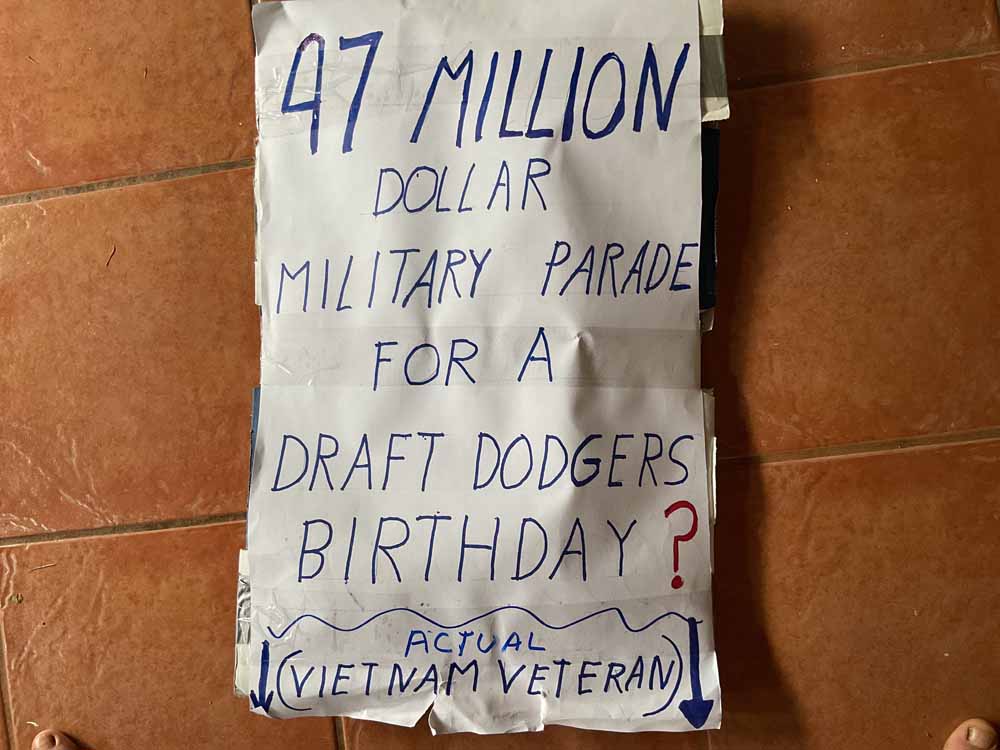 47 MILLION
DOLLAR
MILITARY PARADE
FOR A
DRAFT DODGERS
BIRTHDAY ?
ACTUAL
(VIETNAM VETERAN)